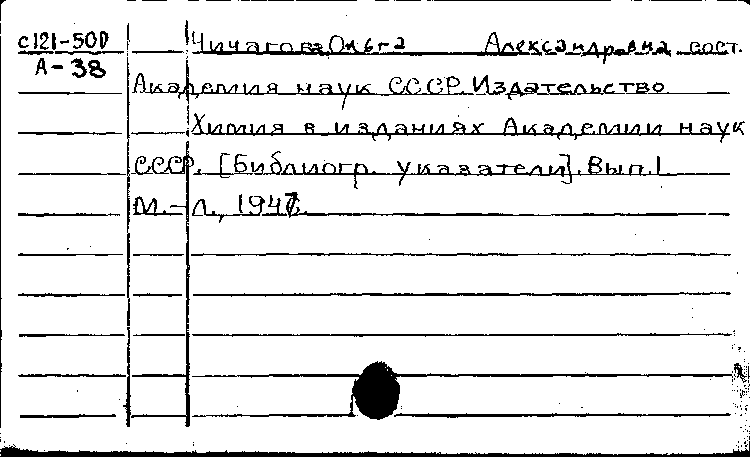 с121-500
А-38
Чичагова Ольга Александровна сост.
Академия наук СССР. Издательство
Химия в изданиях Академии наук
СССР. [Библиогр. указатели]. Вып. 1
М.-Л., 1947.